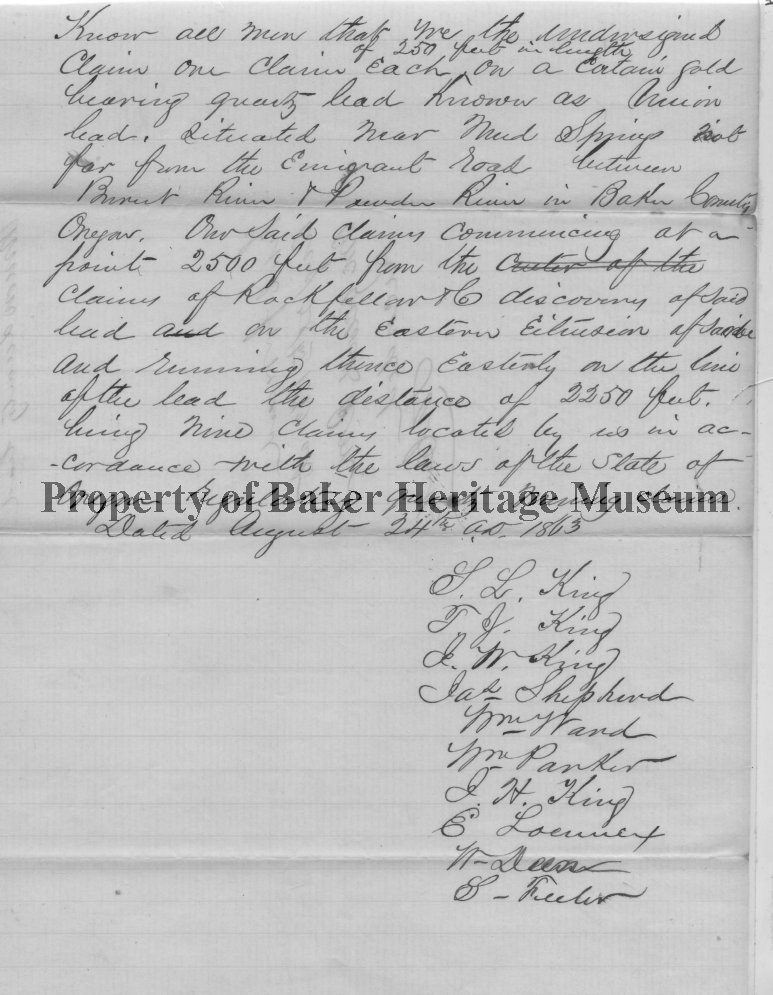 Know all men that we the undersigned
of 250 feet in length
Claim one claim Each on a Certain gold
bearing quartz lead Known as Union
lead. situated near Mud Springs not
far from the Emigrant road between
Burnt River & Powder River in Baker County
Oregon. Our Said claims commencing at a
point 2500 feet from the center of the
claims of Rockfellow & Co discovery of said
lead and on the Eastern Extension of
and running thence Easterly on the line
of the lead the distance of 2250 feet.
being nine claims located by us in ac-
-cordance with the laws of the State of
Oregon regulating quartz mining claims.
Property of Baker Heritage Museum
Dated August 24th AD. 1863
S. L. King
T. J. King
I. W. King
Jas Shepherd
Wm Ward
Wm Parker
J. H. King
E
W
S